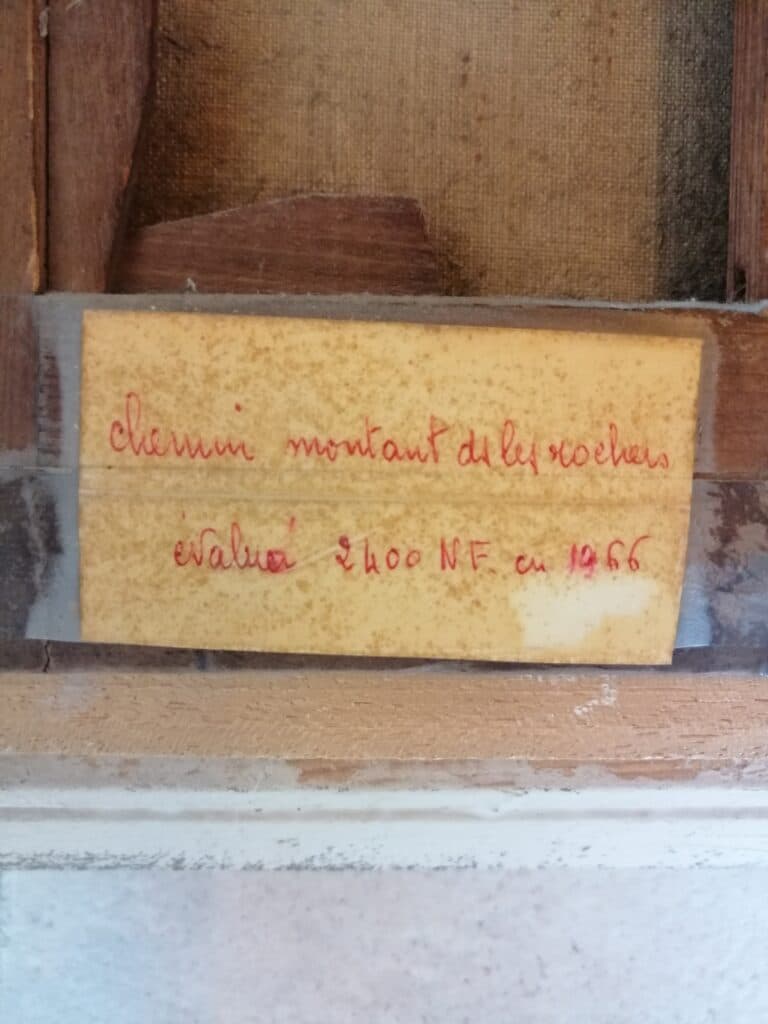 chemin montant ds les rochers
évalué 2400 NF. en 1966